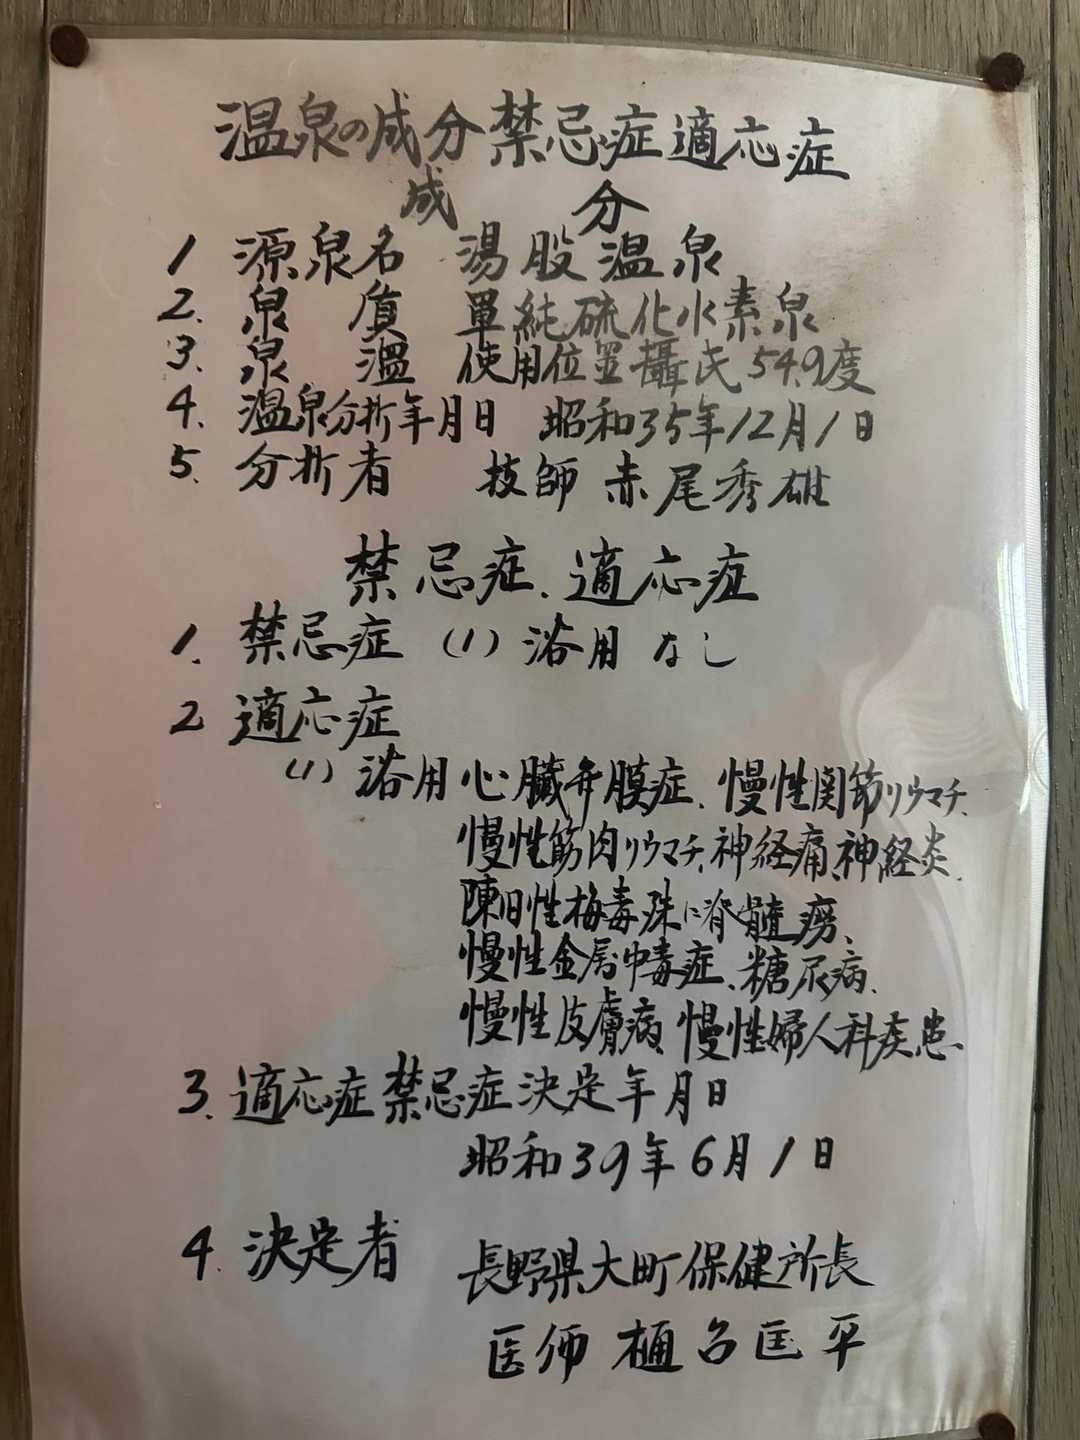 温泉の成分禁忌症適応症
成 分
1 源泉名 湯股温泉
2. 泉 質 單純硫化水素泉
3. 泉 溫 使用位置攝氏54.9度
4. 温泉分析年月日 昭和35年12月1日
5. 分析者 技師 赤尾秀雄
禁忌症、適応症
1. 禁忌症 (1) 浴用 なし
2 適応症
(1) 浴用 心臓弁膜症、慢性関節リウマチ、
慢性筋肉リウマチ、神経痛、神経炎、
陳旧性梅毒殊に脊髄癆、
慢性金属中毒症、糖尿病、
慢性皮膚病、慢性婦人科疾患
3. 適応症禁忌症決定年月日
昭和39年6月1日
4. 決定者 長野県大町保健所長
医師 樋 匡平